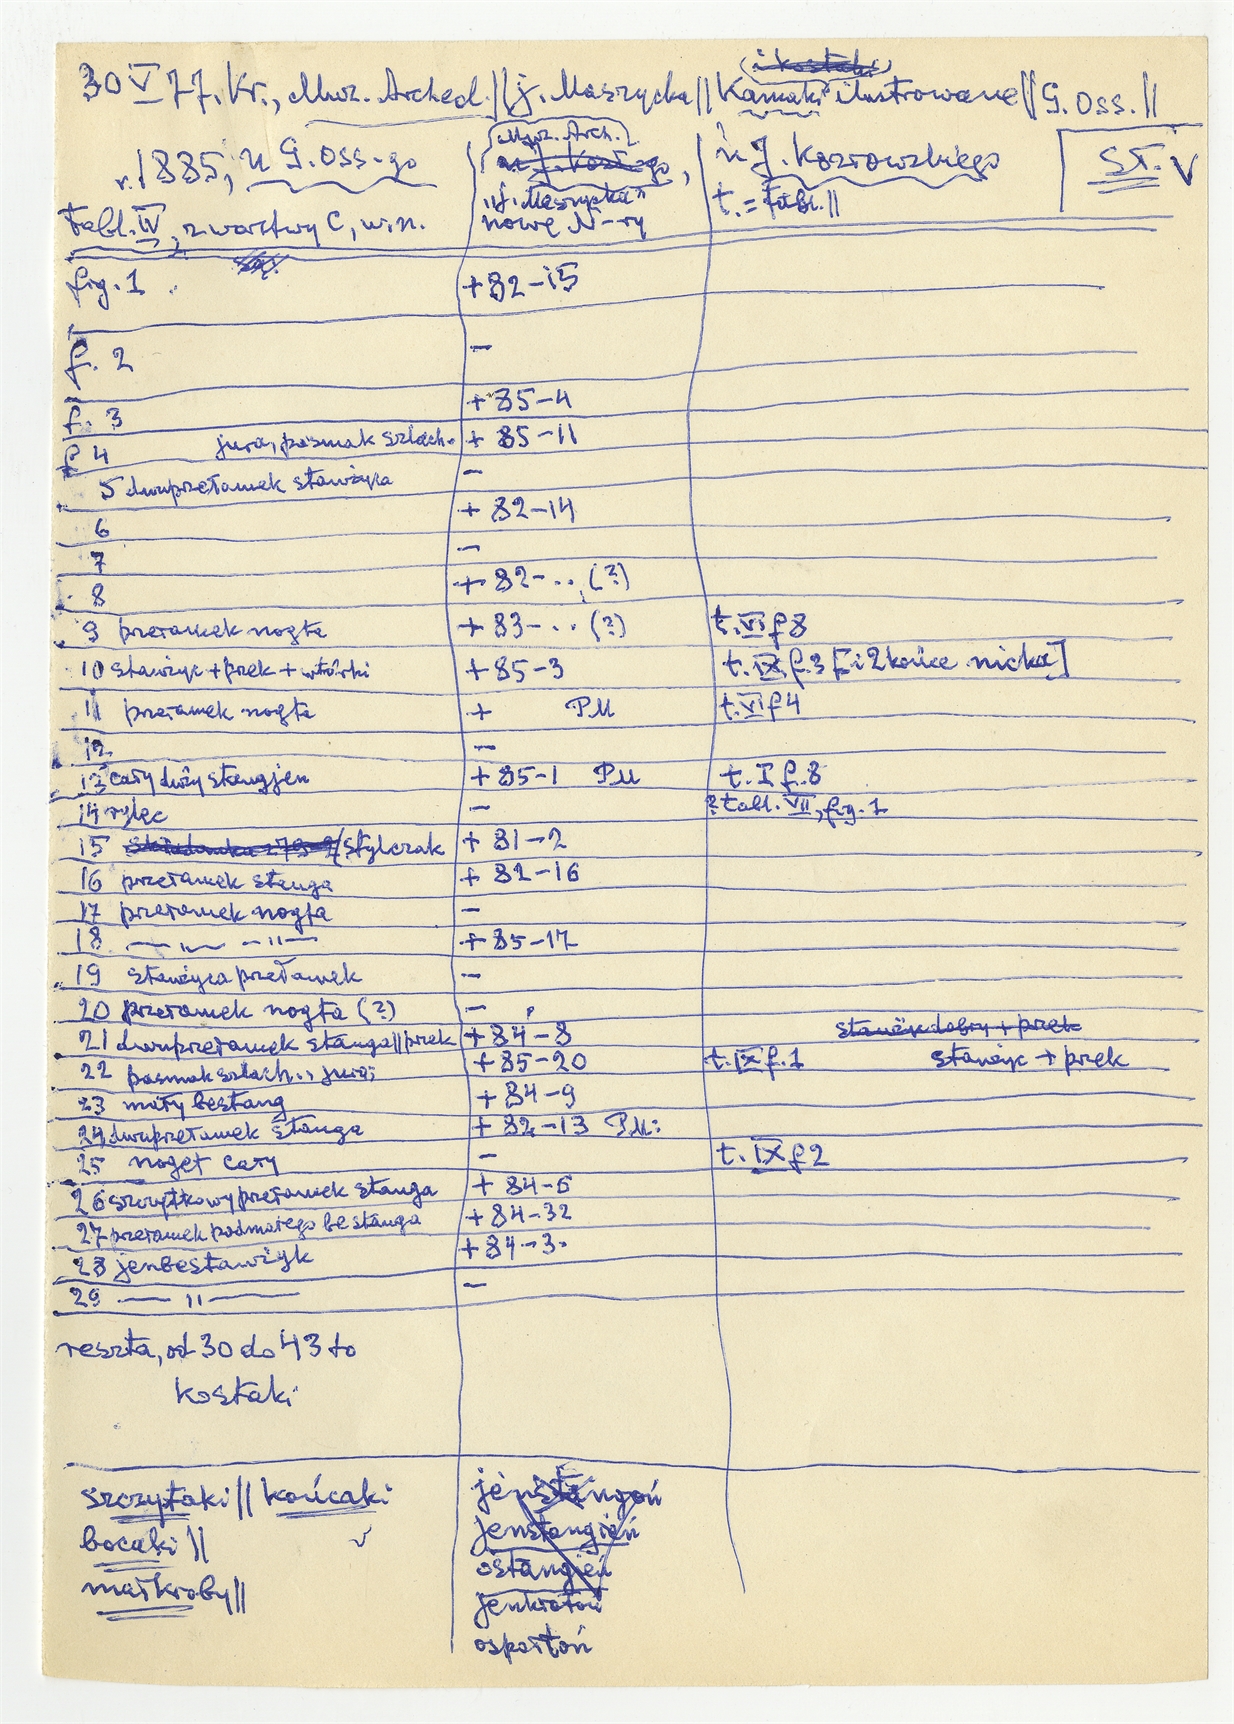 (i kostaki)
30 V 77. Kr., Muz. Archeol. || j. Maszycka || Kamaki ilustrowane || G. Oss. ||
r. 1885, u G. Oss-go
tabl. IV, z warstwy C, w.n.
Muz. Arch.
u J. Kozł-go,
"j. Maszycka"
nowe N-ry
u J. Kozłowskiego
t. = tabl. ||
ST. V
fig. 1 + 82-15
f. 2 -
f. 3 + 85-4
f 4 jura, pasmak szlach. + 85-11
5 dwuprzełamek stawżyca -
6 + 82-14
7 -
8 + 82-... (?)
9 przełamek nogta + 83-... (?) t. VI f 8
10 stawżyc + przek + wtórki + 85-3 t. IX f. 3 [i 2 końce nicka]
11 przełamek nogta + PM t. VI f 4
12 -
13 cały duży stangjen + 85-1 PM t. I f. 8
14 rylec - ? tabl. VII, fig. 1
15 stylczak + 81-2
16 przełamek stanga + 82-16
17 przełamek nogta -
18 —〃— —〃— + 85-17
19 stawżyca przełamek -
20 przełamek nogta (?) -
21 dwuprzełamek stanga || przek + 84-8 stawżyk dobry + przek
22 pasmak szlach.. jura; + 85-20 t. IX f. 1 stawżyc + przek
23 mały bestang + 84-9
24 dwuprzełamek stanga + 82-13 PM:
25 noget cały - t. IX f 2
26 szczytkowy przełamek stanga + 84-6
27 przełamek podmałego bestanga + 84-32
28 jenbestawżyk + 84-3.
29 —〃— -
reszta, od 30 do 43 to
kostaki
szczytaki || końcaki
bocaki ||
małkroby ||
jenstangoń
jenstangień
ostangień
jenkrotoń
osportoń